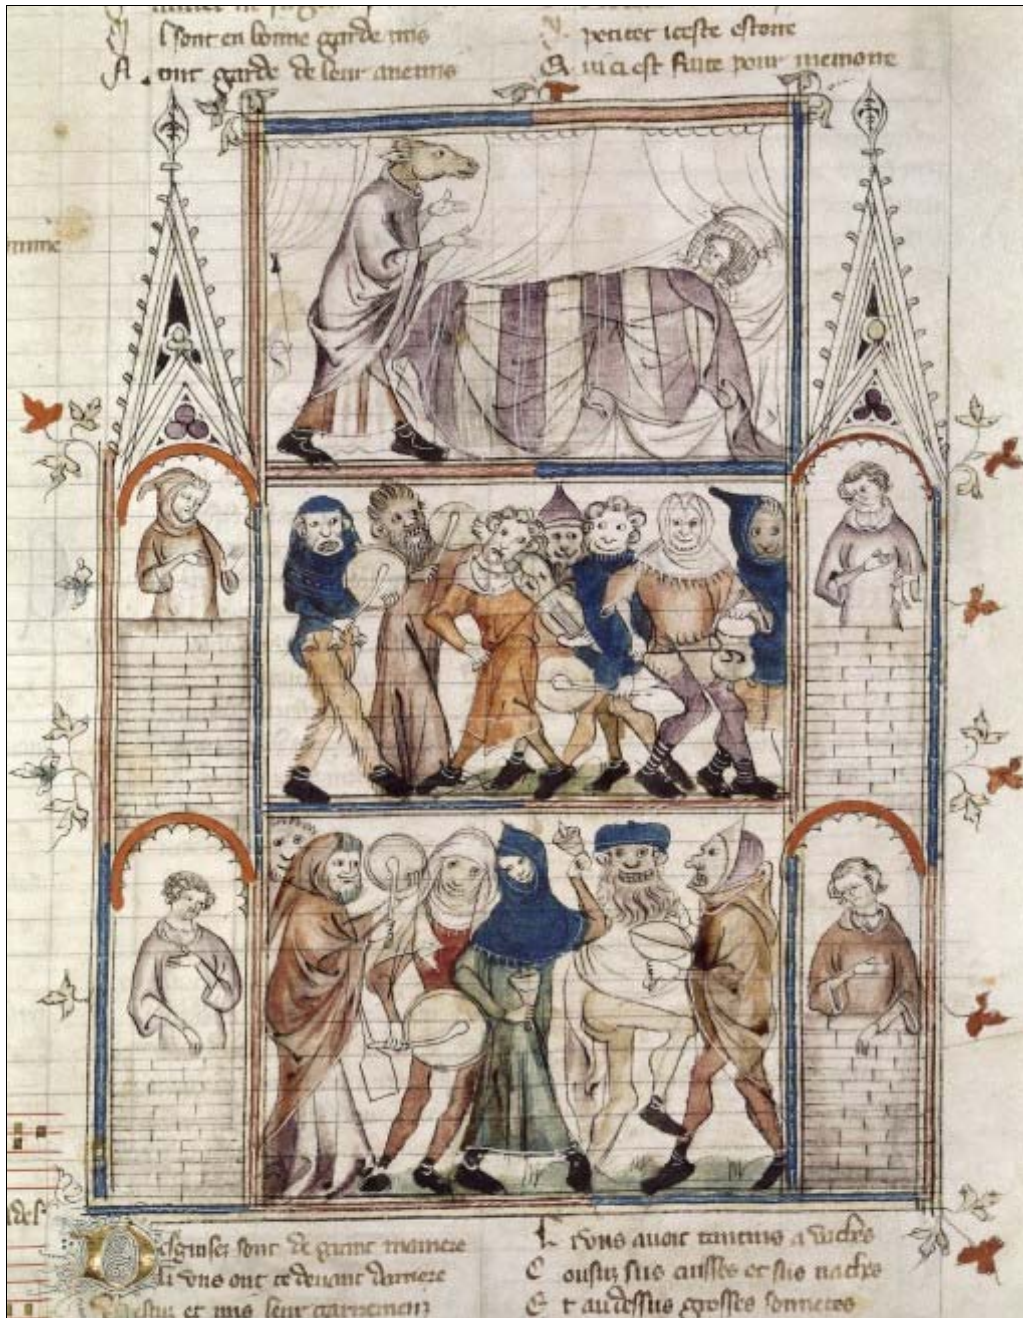 l sont en bonne garde mis
ont garde de leur anemis
estoire
Q ui ci est faite pour memoire
D esguisez sont de grant maniere
Li vns ont ce deuant derriere
Vestuz et mis leur garnemenz
L i vns auoit tantins a vaches
C ousuz sus cuisses et sus naches
E t au dessus grosses sonnetes